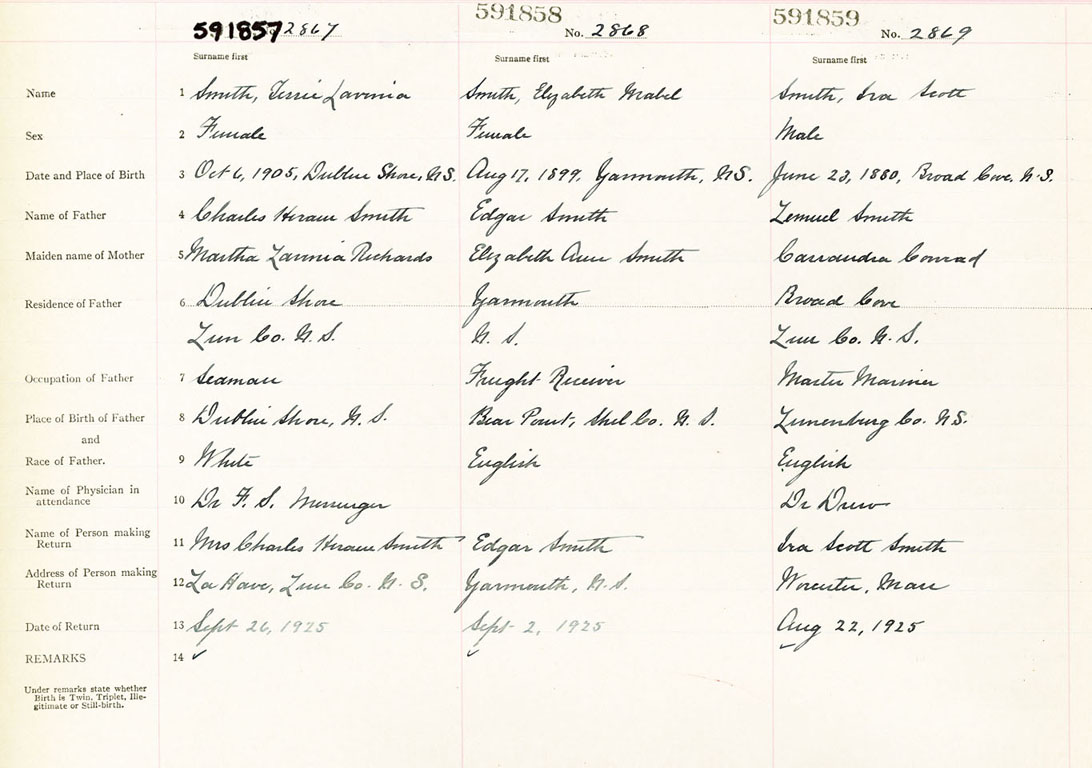 591857 2867 591858 No. 2868 591859 No. 2869
Surname first Surname first Surname first
Name 1 Smith, Tessie Lavinia Smith, Elizabeth Mabel Smith, Ira Scott
Sex 2 Female Female Male
Date and Place of Birth 3 Oct 6, 1905, Dublin Shore, N.S. Aug 17, 1899, Yarmouth, N.S. June 23, 1880, Broad Cove, N.S.
Name of Father 4 Charles Hiram Smith Edgar Smith Lemuel Smith
Maiden name of Mother 5 Martha Lavinia Richards Elizabeth Ann Smith Cassandra Conrad
Residence of Father 6 Dublin Shore Yarmouth Broad Cove
Lun Co. N.S. N.S. Lun Co. N.S.
Occupation of Father 7 Seaman Freight Receiver Master Mariner
Place of Birth of Father 8 Dublin Shore, N.S. Bear Point, Shel Co. N.S. Lunenburg Co. N.S.
and
Race of Father. 9 White English English
Name of Physician in
attendance 10 Dr F. S. Messenger Dr Drew
Name of Person making
Return 11 Mrs Charles Hiram Smith Edgar Smith Ira Scott Smith
Address of Person making
Return 12 La Have, Lun Co. N.S. Yarmouth, N.S. Worcester, Mass
Date of Return 13 Sept 26, 1925 Sept 2, 1925 Aug 22, 1925
REMARKS 14 ✓ ✓ ✓
Under remarks state whether
Birth is Twin, Triplet, Ille-
gitimate or Still-birth.